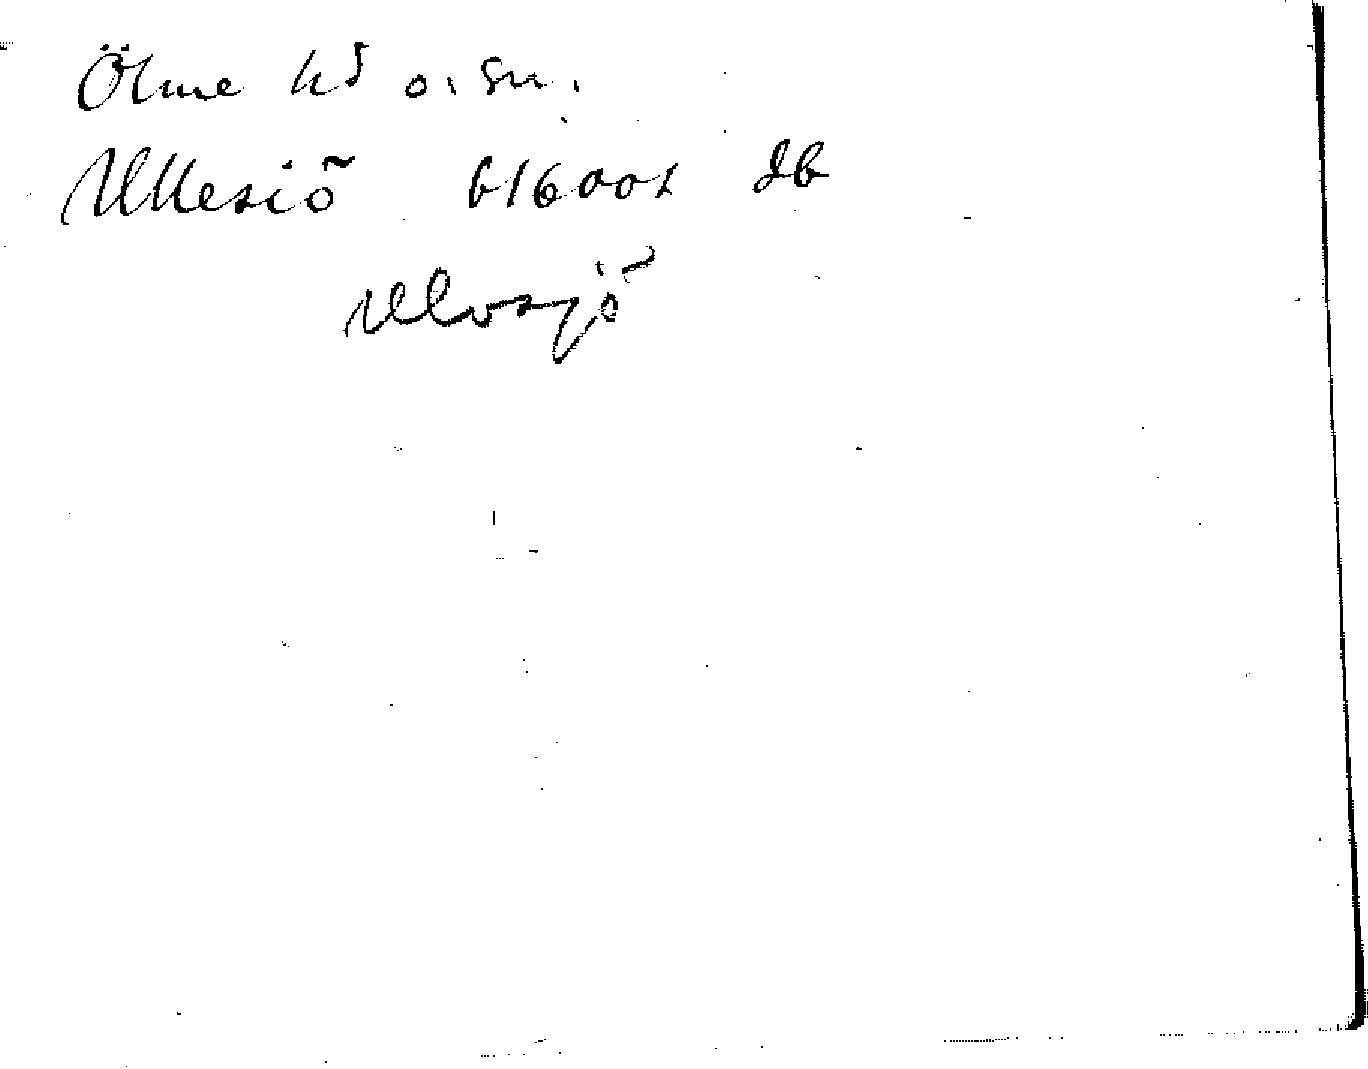 Ölme hd o. sn.
Ullesiö 616001 db
Ulvsjö